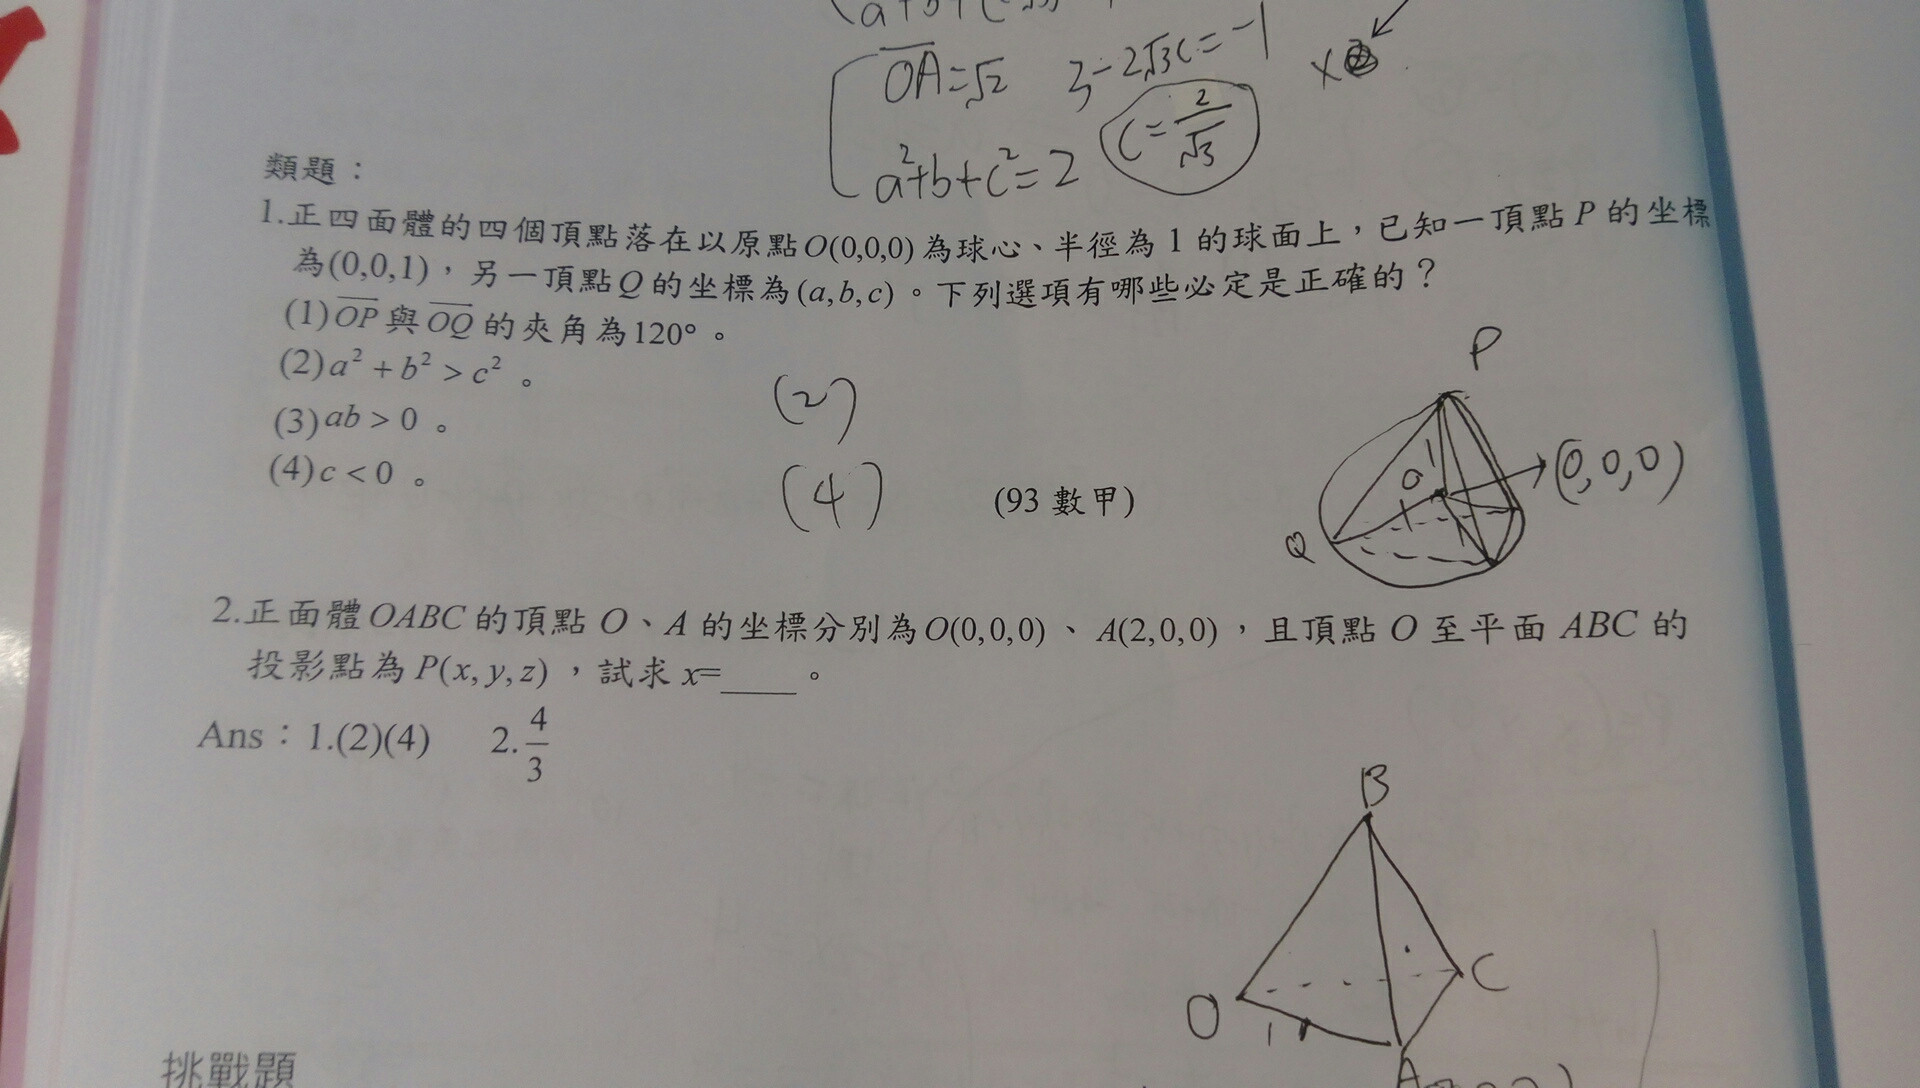 a+b+c
OA=√2 3-2√3c=-1
a²+b+c²=2 c=2/√3
類題：
1.正四面體的四個頂點落在以原點O(0,0,0)為球心、半徑為1的球面上，已知一頂點P的坐標
為(0,0,1)，另一頂點Q的坐標為(a,b,c)。下列選項有哪些必定是正確的？
(1)OP與OQ的夾角為120°。
(2)a²+b²>c²。
(3)ab>0。
(4)c<0。
(2)
(4)
(93 數甲)
P
O
1
1
(0,0,0)
Q
2.正面體OABC的頂點O、A的坐標分別為O(0,0,0)、A(2,0,0)，且頂點O至平面ABC的
投影點為P(x,y,z)，試求x=____。
Ans：1.(2)(4) 2.4/3
B
C
O
A
挑戰題